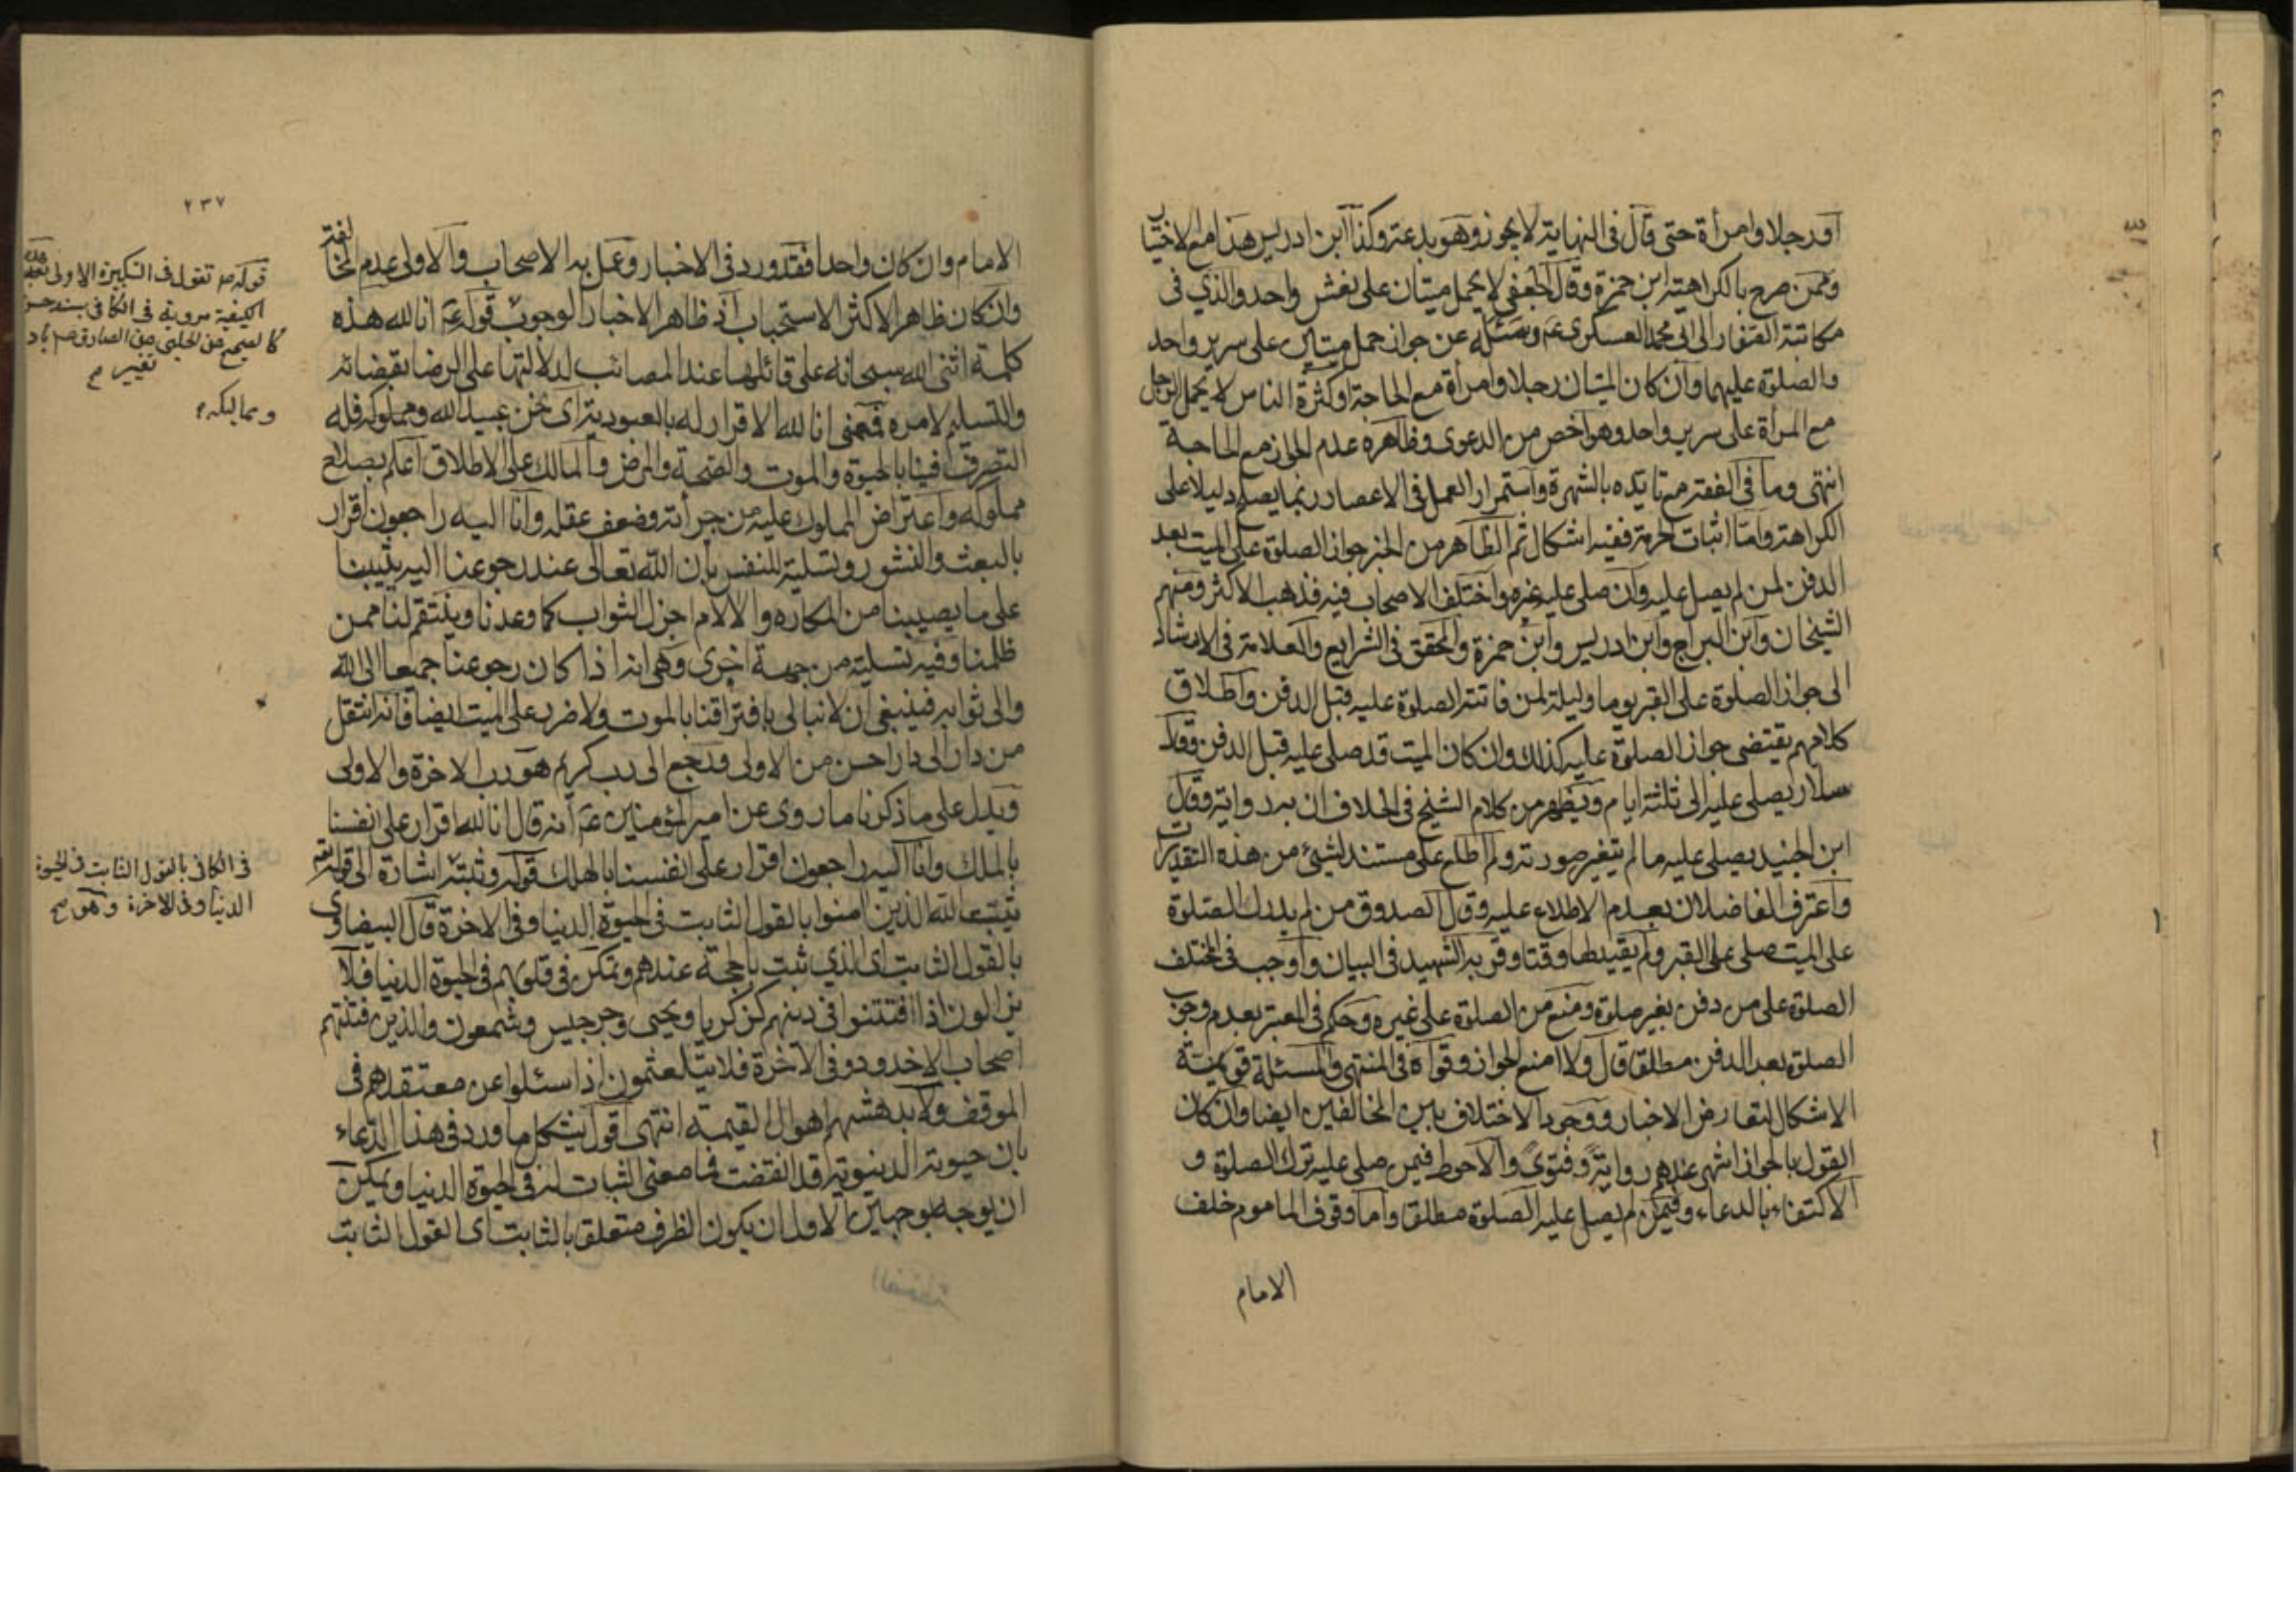 أو رجلا وامرأة حتى قال في النهاية لا يجوز وهو بدعة وكذا ابن ادريس هذا مع الاختيار
وممن صرح بالكراهة ابن حمزة وقال الجعفي لا يحمل ميتان على نعش واحد والذي في
مكاتبة الصفار الى ابي محمد العسكري عم وسئله عن جواز حمل ميتين على سرير واحد
والصلوة عليهما وان كان الميتان رجلا وامرأة مع الحاجة او كثرة الناس لا يحمل الرجل
مع المرأة على سرير واحد وهو أخص من الدعوى وظاهره عدم الجواز مع الحاجة
انتهى وما في الفقه مع تايده بالشهرة واستمرار العمل في الاعصار ربما يصلح دليلا على
الكراهة واما اثبات الحرمة ففيه اشكال ثم الظاهر من الخبر جواز الصلوة على الميت بعد
الدفن لمن لم يصل عليه وان صلى عليه غيره واختلف الاصحاب فيه فذهب الاكثر ومنهم
الشيخان وابن البراج وابن ادريس وابن حمزة والمحقق في الشرايع والعلامة في الارشاد
الى جواز الصلوة على القبر يوما وليلة لمن فاتته الصلوة عليه قبل الدفن واطلاق
كلامهم يقتضى جواز الصلوة عليه كذلك وان كان الميت قد صلى عليه قبل الدفن وقال
سلار يصلى عليه الى ثلثة ايام ويظهر من كلام الشيخ في الخلاف ان به رواية وقال
ابن الجنيد يصلى عليه ما لم يتغير صورته ولم اطلع على مستند لشيئ من هذه التقديرات
واعترف الفاضلان بعدم الاطلاع عليه وقال الصدوق من لم يدرك الصلوة
على الميت صلى على القبر ولم يقيد لها وقتا وقربه الشهيد في البيان واوجب في المختلف
الصلوة على من دفن بغير صلوة ومنع من الصلوة على غيره وحكم في المعتبر بعدم وجوب
الصلوة بعد الدفن مطلقا قال ولا امنع الجواز وقواه في المنتهى والمسئلة قوية
الاشكال لتعارض الاخبار ووجود الاختلاف بين المخالفين ايضا وان كان
القول بالجواز اشهر عندهم رواية وفتوى والاحوط فيمن صلى عليه ترك الصلوة و
الاكتفاء بالدعاء وفيمن لم يصل عليه الصلوة مطلقا واما وقوف الماموم خلف
الامام
٢٣٧
الامام وان كان واحدا فقد ورد في الاخبار وعمل به الاصحاب والاولى عدم المخالفة
وان كان ظاهر الاكثر الاستحباب اذ ظاهر الاخبار الوجوب قوله عم انا لله هذه
كلمة اثنى الله سبحانه على قائلها عند المصائب لدلالتها على الرضا بقضائه
والتسليم لامره فمعنى انا لله الاقرار له بالعبودية اى نحن عبيد الله ومملوكه فله
التصرف فينا بالحيوة والموت والصحة والمرض والمالك على الاطلاق اعلم بصلاح
مملوكه واعتراض المملوك عليه من جرأته وضعف عقله وانا اليه راجعون اقرار
بالبعث والنشور وتسلية للنفس بان الله تعالى عند رجوعنا اليه يثيبنا
على ما يصيبنا من المكاره والالام اجزل الثواب كما وعدنا وينتقم لنا ممن
ظلمنا وفيه تسلية من جهة اخرى وهى انه اذا كان رجوعنا جميعا الى الله
والى ثوابه فينبغى ان لا نبالى بافتراقنا بالموت ولا ضرر على الميت ايضا فانه انتقل
من دار الى دار احسن من الاولى ورجع الى رب كريم هو رب الاخرة والاولى
ويدل على ما ذكرنا ما روى عن امير المؤمنين عم انه قال انا لله اقرار على انفسنا
بالملك وانا اليه راجعون اقرار على انفسنا بالهلك قوله وثبته اشارة الى قوله تعم
يثبت الله الذين امنوا بالقول الثابت في الحيوة الدنيا وفي الاخرة قال البيضاوى
بالقول الثابت اى الذي ثبت بالحجة عندهم وتمكن في قلوبهم في الحيوة الدنيا فلا
يزالون اذا افتتنوا في دينهم كزكريا ويحيى وجرجيس وشمعون والذين فتنهم
اصحاب الاخدود وفي الاخرة فلا يتلعثمون اذا سئلوا عن معتقدهم في
الموقف ولا يدهشهم اهوال القيمة انتهى اقول يشكل ما ورد في هذا الدعاء
بان حيوته الدنيوية قد انقضت فما معنى الثبات له في الحيوة الدنيا ويمكن
ان يوجه بوجهين الاول ان يكون الظرف متعلقا بالثابت اى القول الثابت
قوله ص تقول في التكبيرة الاولى هذه
الكيفية مروية في الكافي بسند حسن
كالصحيح عن الحلبى عن الصادق
تغيير م
في الكافي بالقول الثابت في الحيوة
الدنيا وفي الاخرة وهو صح